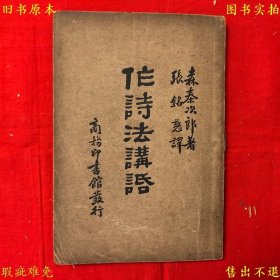 旧书原本
如图实拍
森泰次郎著
張銘慈譯
作詩法講話
商務印書館發行
瑕疵难免
售出不退